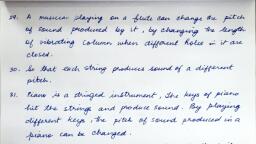 29. A musician playing on a flute can change the pitch
of sound produced by it, by changing the length
of vibrating column when different holes in it are
closed.
30. So that each string produces sound of a different
pitch.
31. Piano is a stringed instrument. The keys of piano
hit the strings and produce sound. By playing
different keys, the pitch of sound produced in a
piano can be changed.